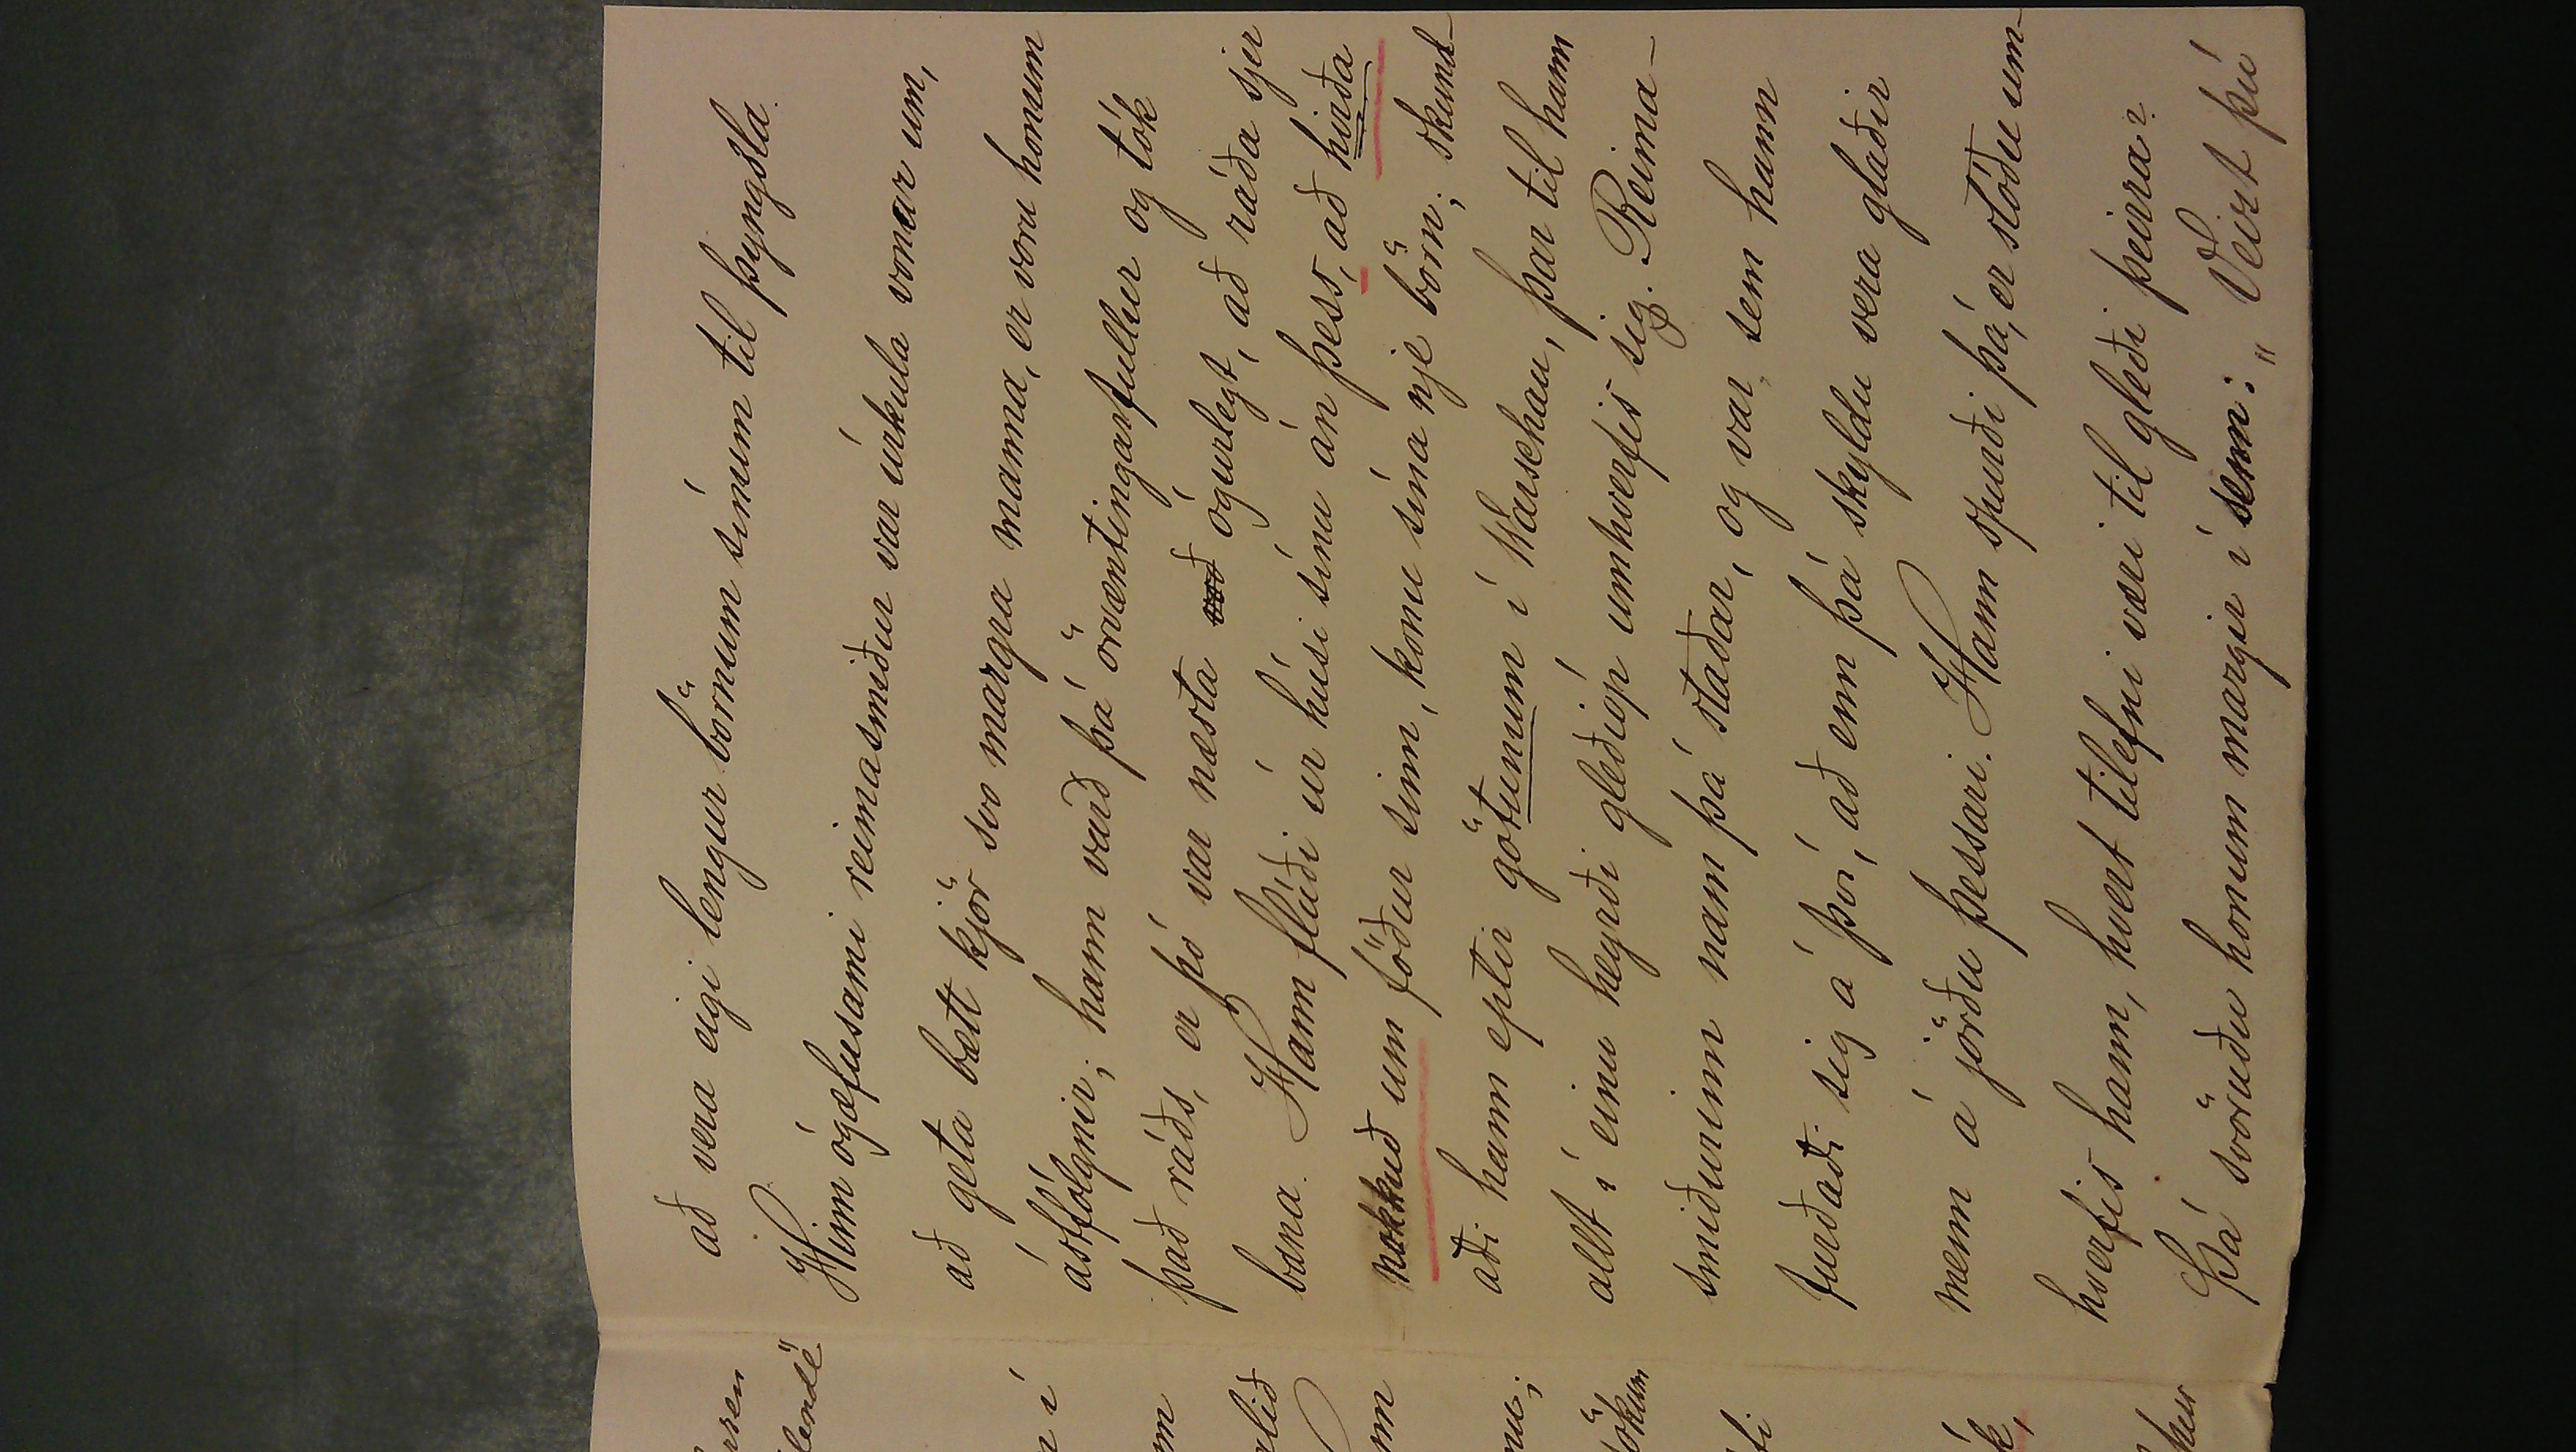 að vera eigi lengur börnum sínum til þyngsla.
Hinn ógæfusami reimasmiður var úrkula vonar um,
að geta bætt kjör svo margra manna, er voru honum
ástfólgnir; hann varð þá örvæntingarfullur og tók
það ráðs, er þó var næsta ógurlegt, að ráða sjer
bana. Hann flúði úr húsi sínu án þess, að hirða
nokkuð um föður sinn, konu sína nje börn; skund-
aði hann eptir götunum í Warschau, þar til hann
allt í einu heyrði gleðióp umhverfis sig. Reima-
smiðurinn nam þá staðar, og var, sem hann
furðaði sig á því, að enn þá skyldu vera glaðir
menn á jörðu þessari. Hann spurði þá, er stóðu um-
hverfis hann, hvert tilefni væri til gleði þeirra?
Þá svöruðu honum margir í senn: „Veizt þú
rsen
lendë
r í
m
lið
m
nu;
ökum
fi
k,
hur